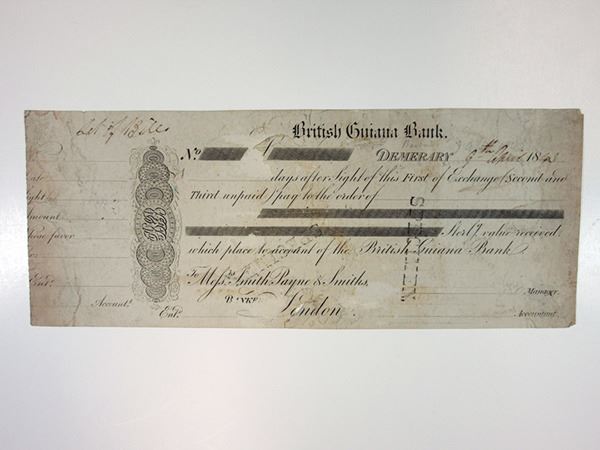 Set of Bills
British Guiana Bank.
No £ DEMERARY 9th April 184
days after Sight of this First of Exchange (Second and
Third unpaid) pay to the order of
Sterlg. value received,
which place to account of the British Guiana Bank.
To Messrs. Smith, Payne & Smiths,
BANKE
London.
Manager.
Accountt.
Entd.
Accountant.
mount
hose favor
Entd.